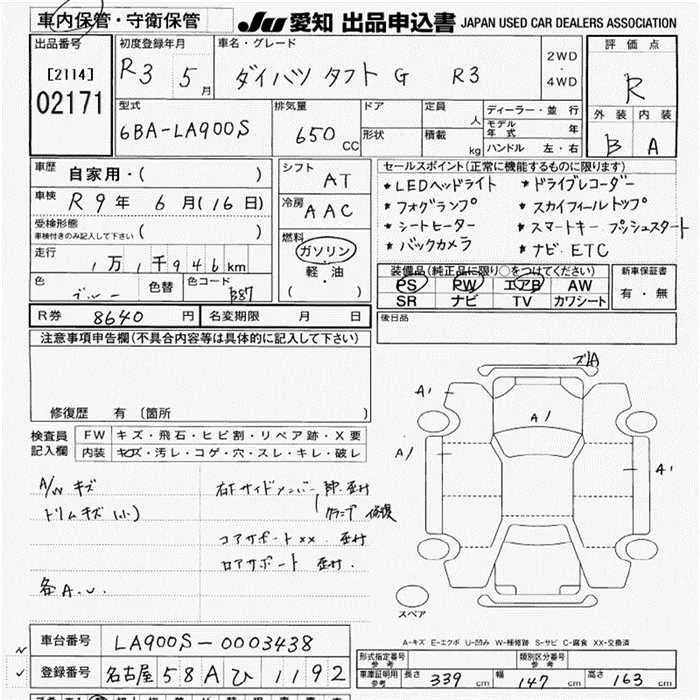 車内保管・守衛保管 JU 愛知 出品申込書 JAPAN USED CAR DEALERS ASSOCIATION
出品番号
[2114]
02171
初度登録年月
R3 5月
車名・グレード
ダイハツ タフト G R3
2WD
・
4WD
評価点
R
外装 内装
B A
型式
6BA-LA900S
排気量
650 CC
ドア
形状
定員 人
積載 kg
ディーラー・並行
モデル年式 年
ハンドル 左・右
車歴 自家用・( )
車検 R9年 6月(16日)
受検形態
車検付きのみ記入して下さい ( )
走行 1万1千946km
色 ブルー 色替 色コード B87
シフト AT
冷房 AAC
燃料
ガソリン
・
軽・油
( )
セールスポイント(正常に機能するものに限ります)
*LEDヘッドライト *ドライブレコーダー
*フォグランプ *スカイフィールトップ
*シートヒーター *スマートキー プッシュスタート
*バックカメラ *ナビ.ETC
装備品(純正品に限り○をつけてください)
PS PW エアB AW
SR ナビ TV カワシート
新車保証書
有・無
R券 8640円 名変期限 月 日
後日品
注意事項申告欄(不具合内容等は具体的に記入して下さい)
修復歴 有 〔箇所 〕
検査員記入欄
FW キズ・飛石・ヒビ割・リペア跡・X要
内装 キズ・汚レ・コゲ・穴・スレ・キレ・破レ
A/W キズ
トリムキズ(小)
各A.U.
右Fサイドメンバー
コアサポートxx.
ロアサポート
A'
A/
A/
A'
スペア
A-キズ E-エクボ U-凹み W-補修跡 S-サビ C-腐食 XX-交換済
車台番号 LA900S-0003438
登録番号 名古屋 58A ひ 1192
形式指定番号 参考
類別区分番号 参考
車庫証明用 参考 長さ 339cm 幅 147cm 高さ 163cm